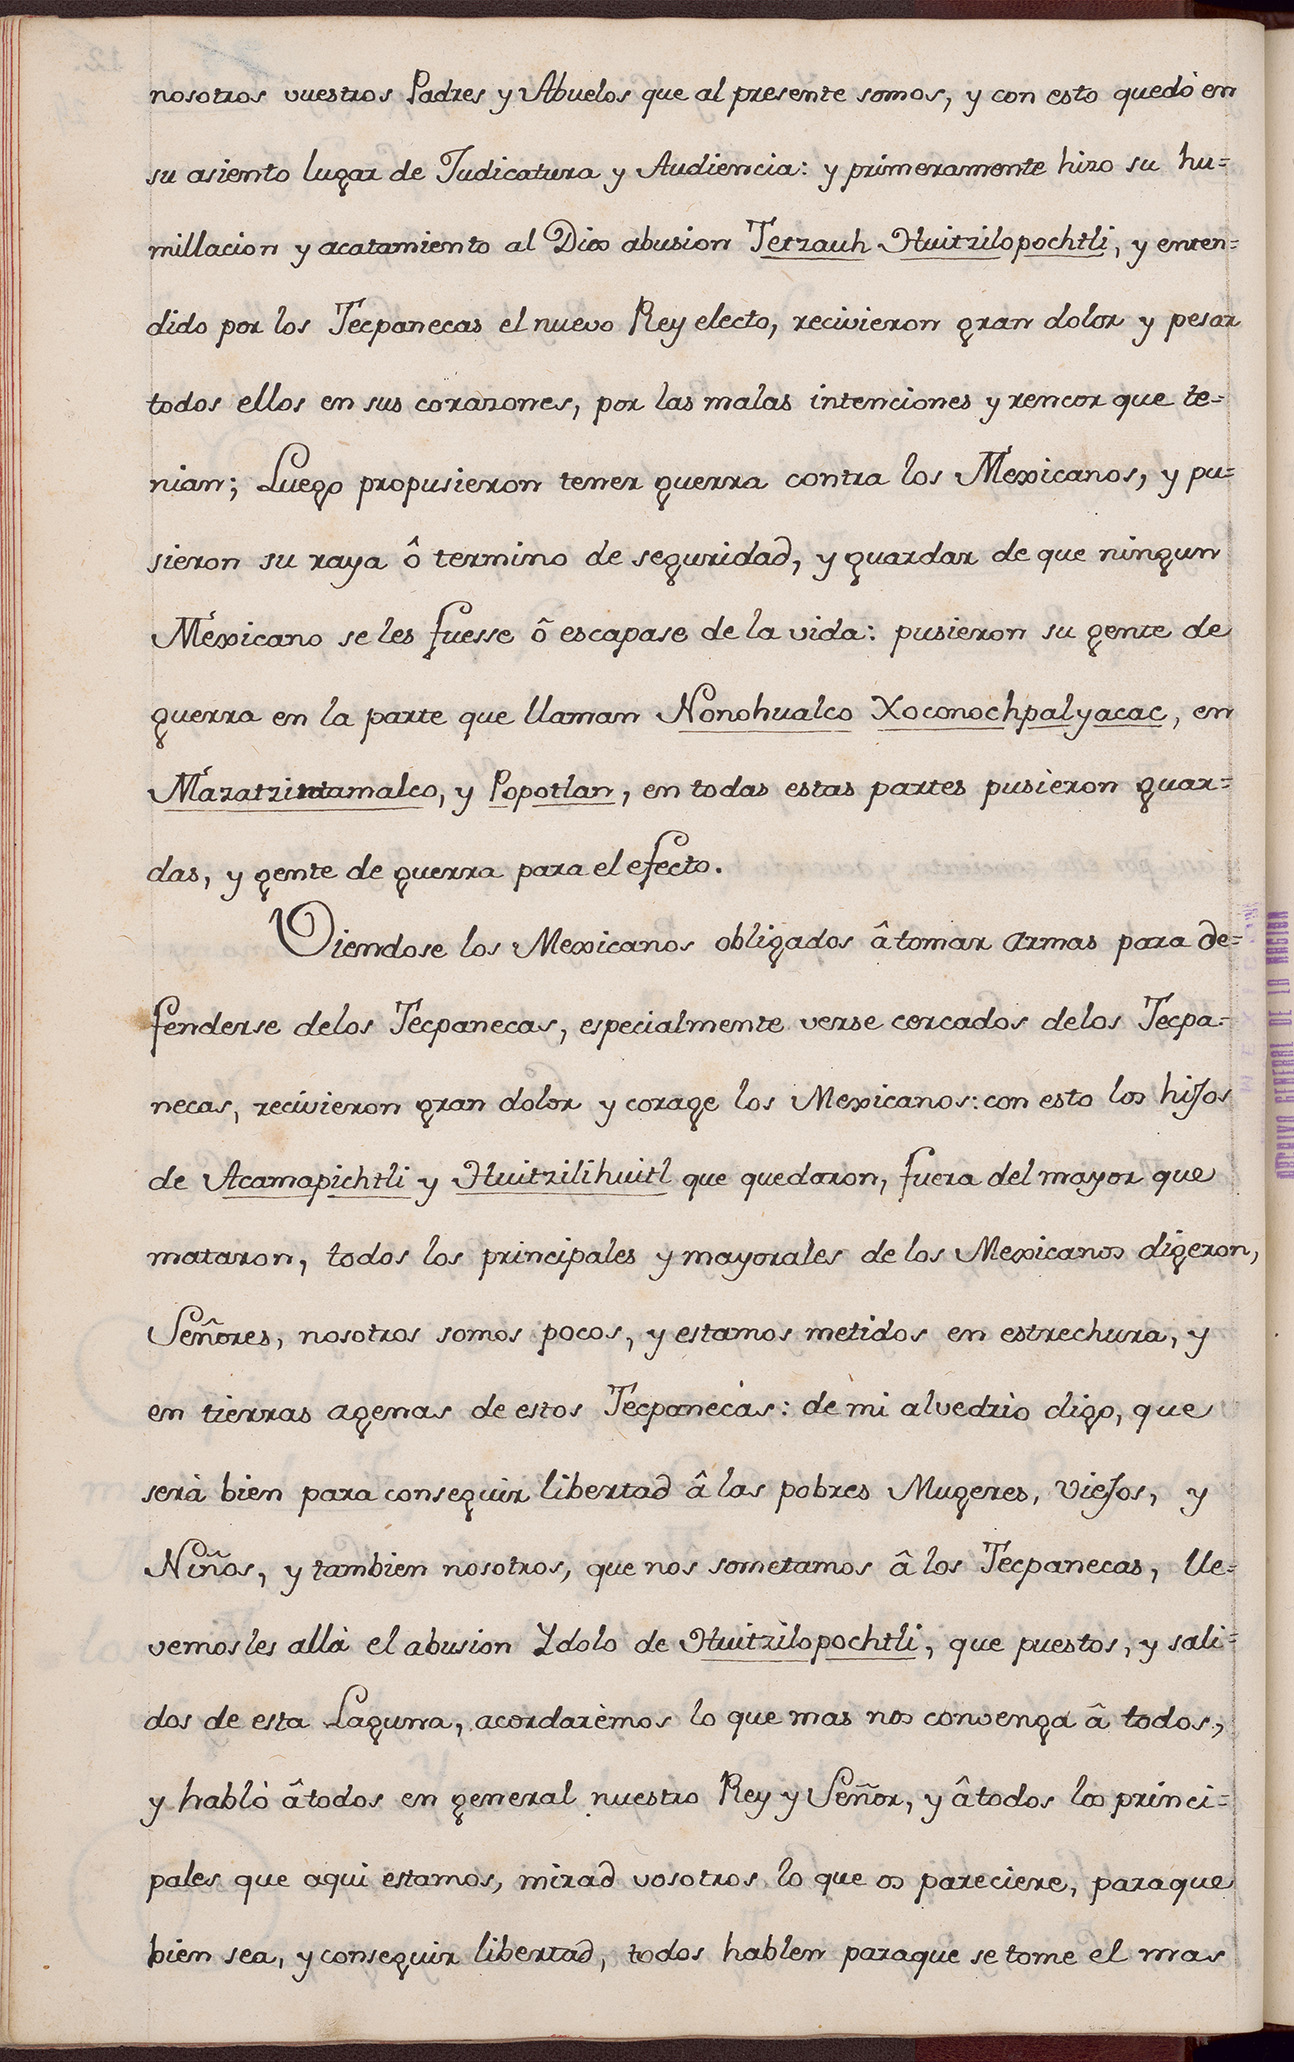 nosotros vuestros Padres y Abuelos que al presente sómos, y con esto quedò en
su asiento lugar de Judicatura y Audiencia: y primeramente hizo su hu=
millacion y acatamiento al Dios abusion Tetzauh Huitzilopochtli, y enten=
dido por los Tecpanecas el nuevo Rey electo, recivieron gran dolor y pesar
todos ellos en sus corazones, por las malas intenciones y rencor que te=
nian; Luego propusieron tener guerra contra los Mexicanos, y pu=
sieron su raya ô termino de seguridad, y guardar de que ningun
Mexicano se les fuesse ô escapase de la vida: pusieron su gente de
guerra en la parte que llaman Nonohualco Xoconochpalyacac, en
Mazatzintamalco, y Popotlan, en todas estas partes pusieron guar=
das, y gente de guerra para el efecto.
Viendose los Mexicanos obligados â tomar armas para de=
fenderse delos Tecpanecas, especialmente verse cercados delos Tecpa=
necas, recivieron gran dolor y corage los Mexicanos: con esto los hijos
de Acamapichtli y Huitzilihuitl que quedaron, fuera del mayor que
mataron, todos los principales y mayorales de los Mexicanos digeron,
Señores, nosotros somos pocos, y estamos metidos en estrechura, y
en tierras agenas de estos Tecpanecas: de mi alvedrio digo, que
serà bien para conseguir libertad â las pobres Mugeres, Viejos, y
Niños, y tambien nosotros, que nos sometamos â los Tecpanecas, lle=
vemosles allà el abusion Ydolo de Huitzilopochtli, que puestos, y sali=
dos de esta Laguna, acordarèmos lo que mas nos convenga â todos,
y hablò â todos en general nuestro Rey y Señor, y â todos los princi=
pales que aqui estamos, mirad vosotros lo que os pareciere, paraque
bien sea, y conseguir libertad, todos hablen paraque se tome el mas
ARCHIVO GENERAL DE LA NACION